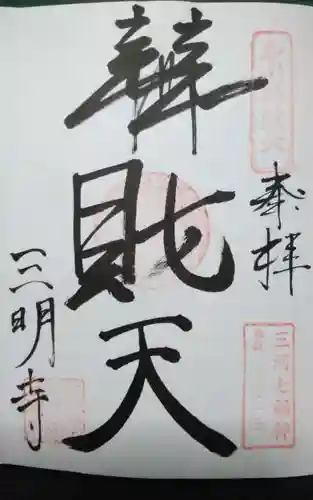 奉拝
三河七福神
辨財天
三明寺